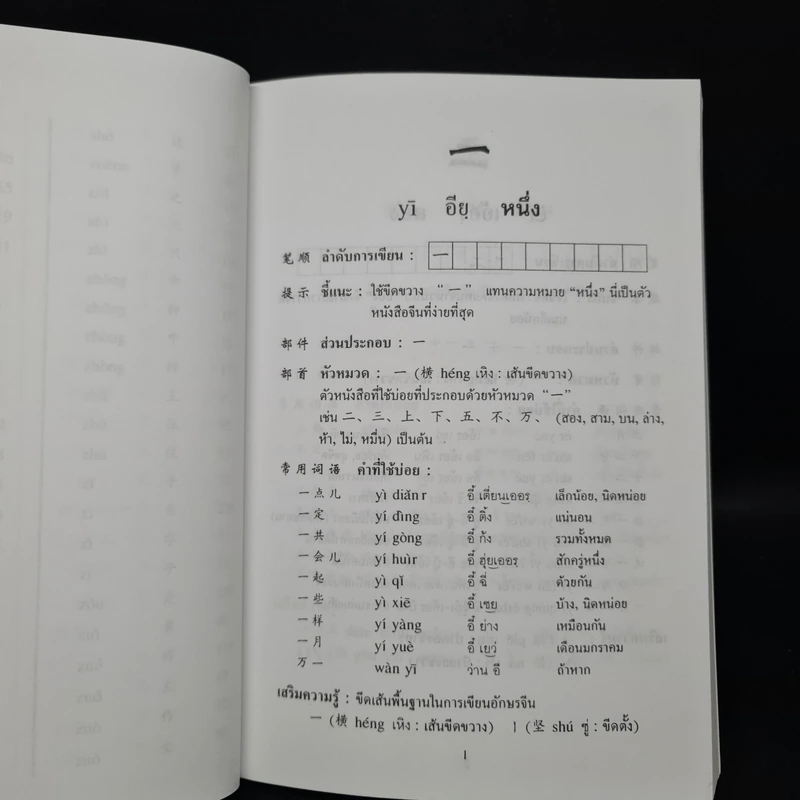 一
yī อียฺ หนึ่ง
笔顺 ลำดับการเขียน : 一
提示 ชี้แนะ : ใช้ขีดขวาง “一” แทนความหมาย “หนึ่ง” นี่เป็นตัว
หนังสือจีนที่ง่ายที่สุด
部件 ส่วนประกอบ : 一
部首 หัวหมวด : 一 (横 héng เหิง : เส้นขีดขวาง)
ตัวหนังสือที่ใช้บ่อยที่ประกอบด้วยหัวหมวด “一”
เช่น 二、三、上、下、五、不、万、 (สอง, สาม, บน, ล่าง,
ห้า, ไม่, หมื่น) เป็นต้น
常用词语 คำที่ใช้บ่อย :
一点儿 yì diǎnr อี้ เตี่ยนเออรฺ เล็กน้อย, นิดหน่อย
一定 yí dìng อี๋ ติ้ง แน่นอน
一共 yí gòng อี๋ ก้ง รวมทั้งหมด
一会儿 yí huìr อี๋ ฮุ่ยเออรฺ สักครู่หนึ่ง
一起 yì qǐ อี้ ฉี่ ด้วยกัน
一些 yì xiē อี้ เซย บ้าง, นิดหน่อย
一样 yí yàng อี๋ ย่าง เหมือนกัน
一月 yí yuè อี๋ เยว่ เดือนมกราคม
万一 wàn yī ว่าน อี ถ้าหาก
เสริมความรู้ : ขีดเส้นพื้นฐานในการเขียนอักษรจีน
一 (横 héng เหิง : เส้นขีดขวาง) 丨 (坚 shú ซู่ : ขีดตั้ง)
1